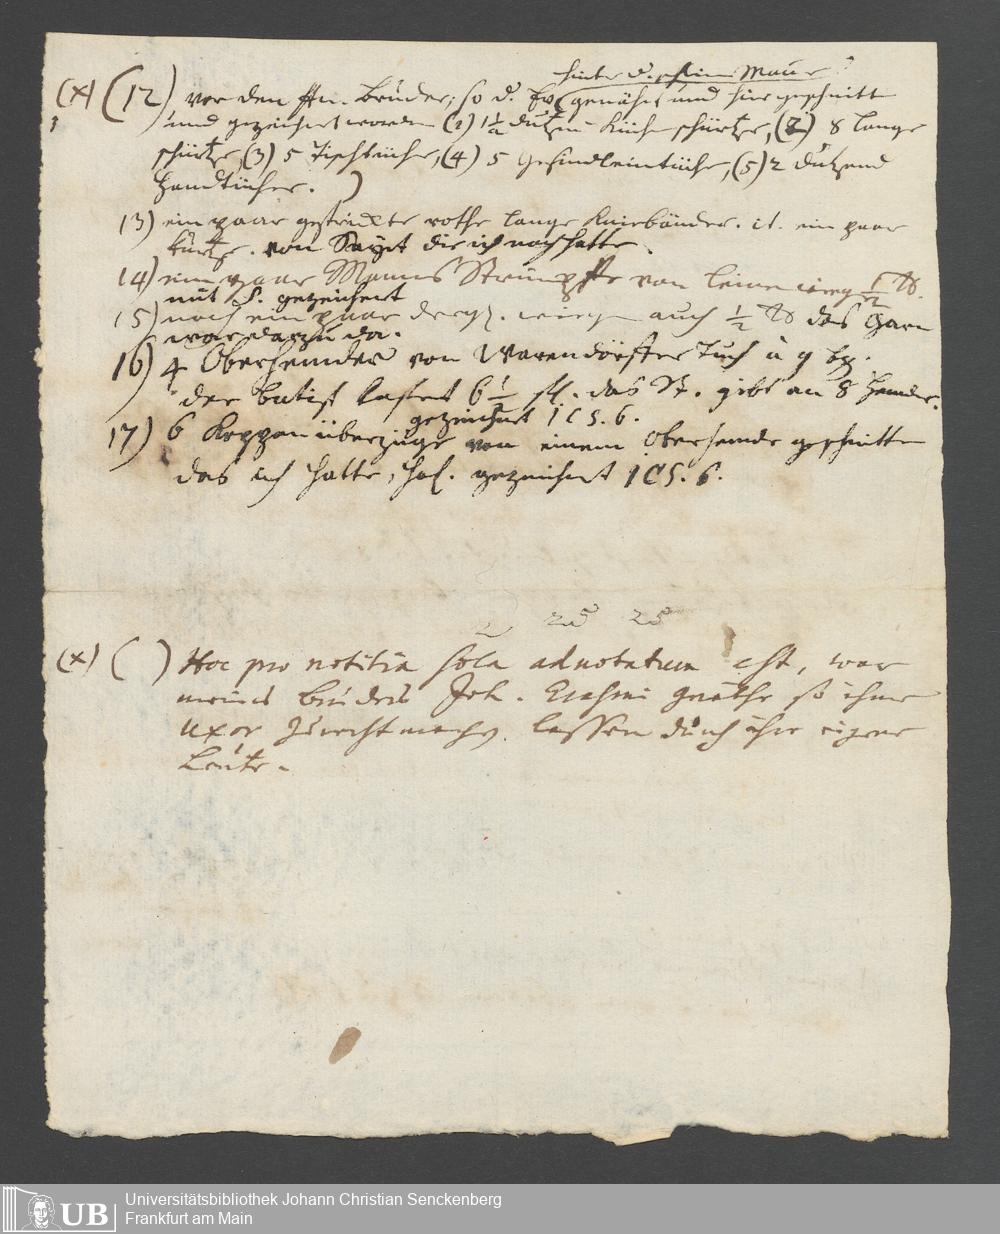 hinter d. schlim Mauer
(x) (12) vor den Hn. Bruder, so d. genähet und hier geschnitten
und gezeichnet worden (1) 1½ dutzend Küchen schürtze, (2) 8 lange
schürtze, (3) 5 Tischtücher, (4) 5 Gesindleintücher, (5) 2 dutzend
Handtücher. )
13) ein paar gestrickte rothe lange Kniebänder. it. ein paar
kurtze. von Sayet die ich noch hatte
14) ein paar Manns Strümpffe von leinen ½ ℔.
mit S. gezeichnet
15) noch ein paar dergl. auch ½ ℔ das Garn
war darzu da.
16) 4 Oberhemder von Warendörffer Tuch à 9 bz.
der batist kostet 6½ fl. das St. gibt an 8 Hemder.
gezeichnet ICS. 6.
17) 6 Koppenüberzüge von einem Oberhemde geschnitten
das ich hatte, gezeichnet ICS. 6.
2 25 25
(x) ( ) Hoc pro notitia sola adnotatum est, war
meines bruders Joh. Erasmi geräthe so ihme
Uxor zurecht machen lassen durch ihre eigene
Leute.
UB Universitätsbibliothek Johann Christian Senckenberg
Frankfurt am Main